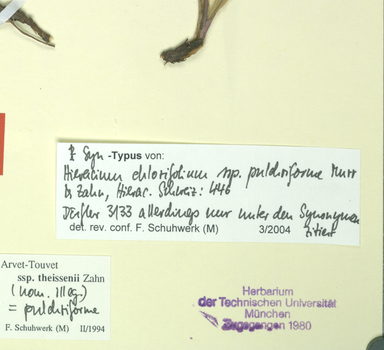 Syn -Typus von:
Hieracium chlorifolium ssp. pulchriforme Murr
& Zahn, Hierac. Schweiz: 446
3/33 allerdings nur unter den Synonymen
zitiert
det. rev. conf. F. Schuhwerk (M) 3/2004
Arvet-Touvet
ssp. theissenii Zahn
(nom. illeg.)
= pulchriforme
F. Schuhwerk (M) II/1994
Herbarium
der Technischen Universität
München
Zugegangen 1980